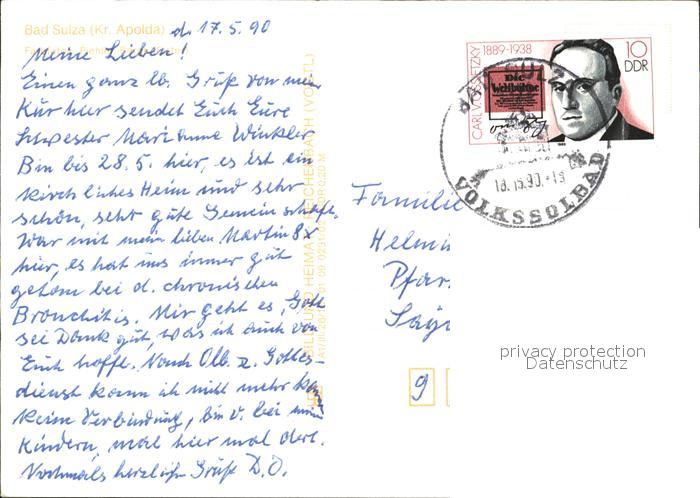 Bad Sulza (Kr. Apolda) d. 17.5.90
Meine Lieben!
Einen ganz lb. Gruß von mein
Kur hier sendet Euch Eure
Schwester Marianne Winkler
Bin bis 28.5. hier, es ist ein
kirchliches Heim und sehr
schön, sehr gute Gemeinschaft.
War mit mein lieben Martin 8x
hier, es hat uns immer gut
getan bei d. chronischen
Bronchitis. Mir geht es, Gott
sei Dank gut, was ich auch von
Euch hoffe. Nach Olb. z. Gottes-
dienst kann ich nicht mehr
keine Verbindung, bin v. bei mein
Kindern, mal hier mal dort.
Nochmals herzlich Grüße D. O.
CARL V. OSSIETZKY 1889-1938
Die Weltbühne
10
DDR
BAD SULZA
18.-5.90.-
VOLKSSOLBAD
Familie
Helm
Pfar
9
privacy protection
Datenschutz
BILD UND HEIMAT REICHENBACH (VOGTL)